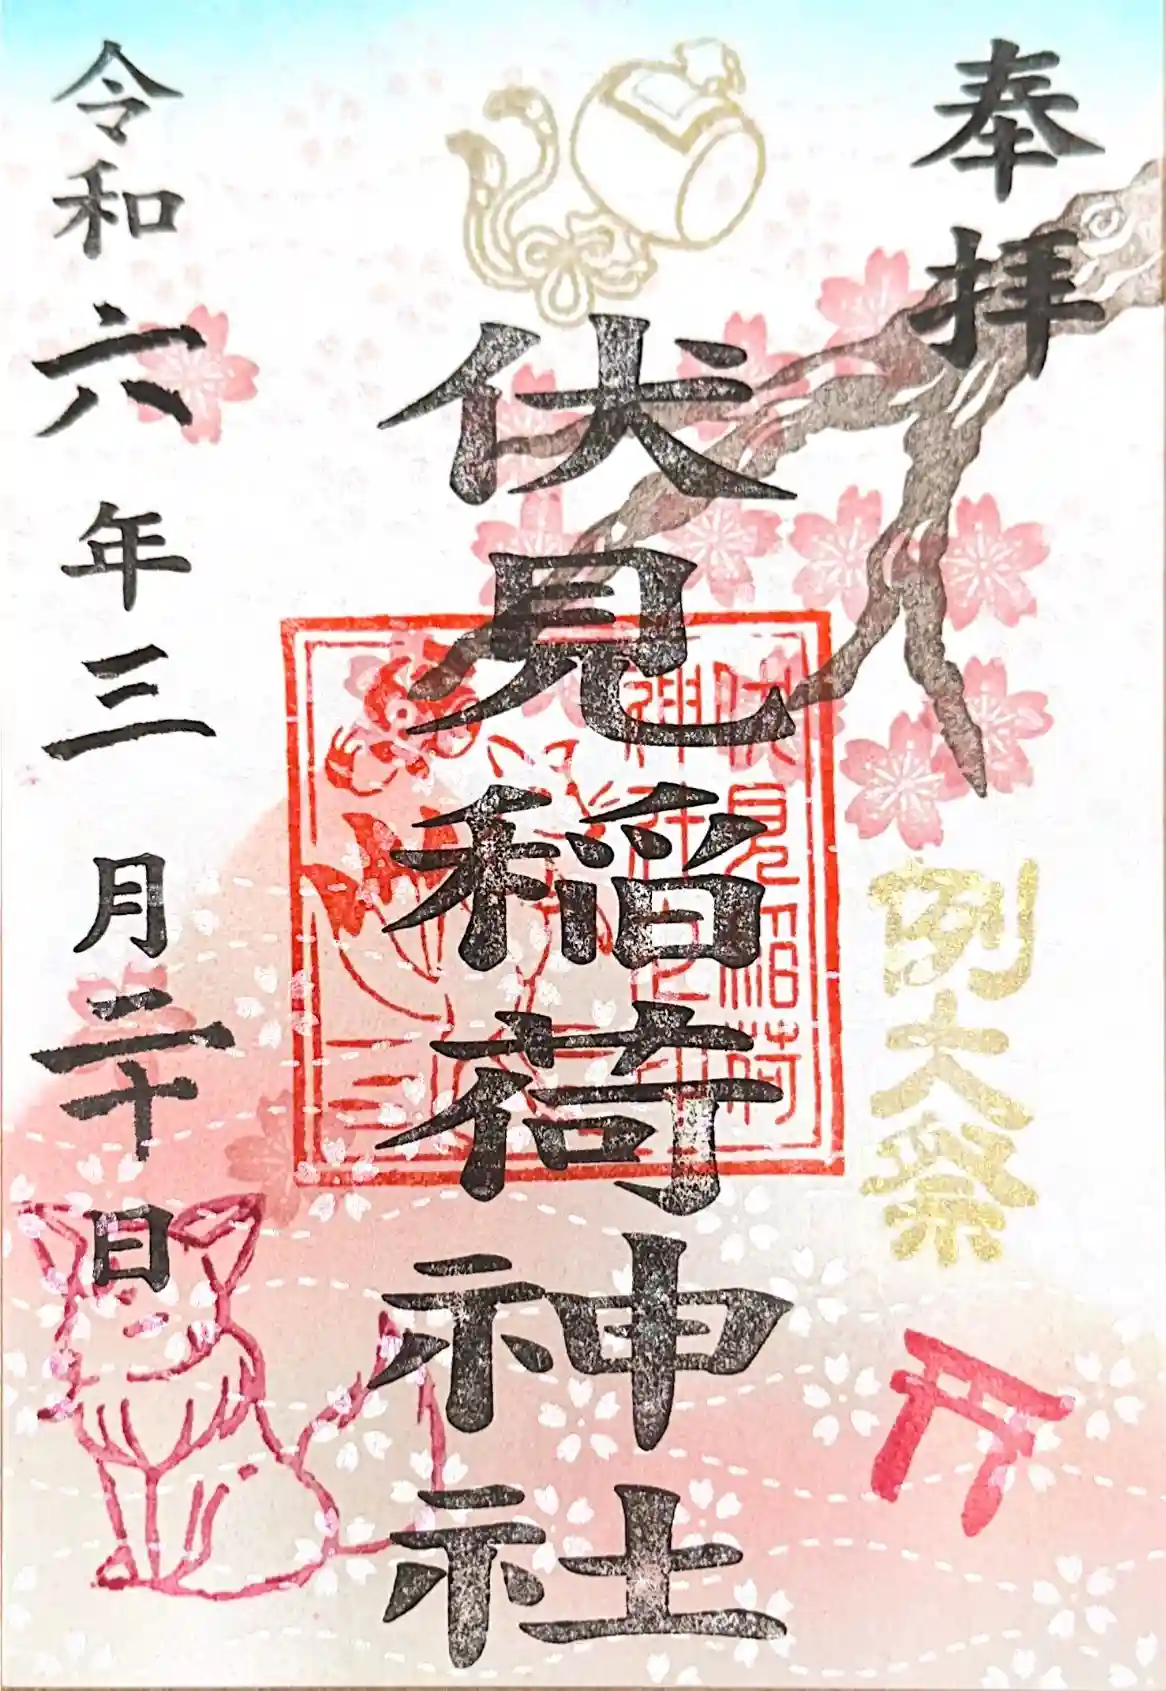 奉拝
例大祭
伏見稲荷神社
伏見稲荷
神社之印
令和六年三月二十日